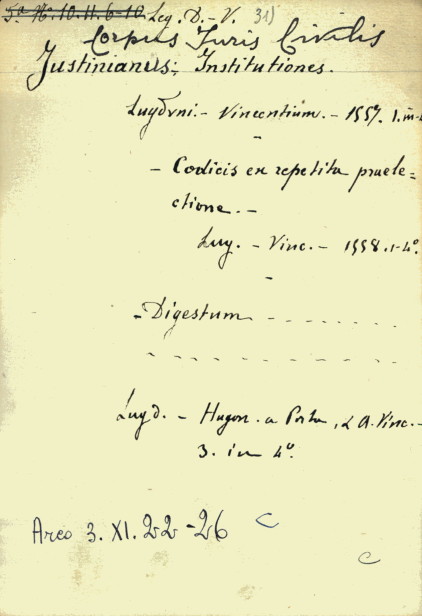 5a No. 10. H. 6-10 Leg. D. - V. 315
Corpus Juris Civilis
Justinianus; Institutiones.
Lugdvni. - Vincentium. - 1557. 1. in-
- Codicis ex repetita praele=
ctione. -
Lug. - Vinc. - 1558. 1-4º.
-
-Digestum - - - - - - -
- - - - - - - - - - - -
Lugd. - Hugon. a Porta, & A. Vinc. -
3. in 4º.
Arco 3. XI. 22-26 C
C